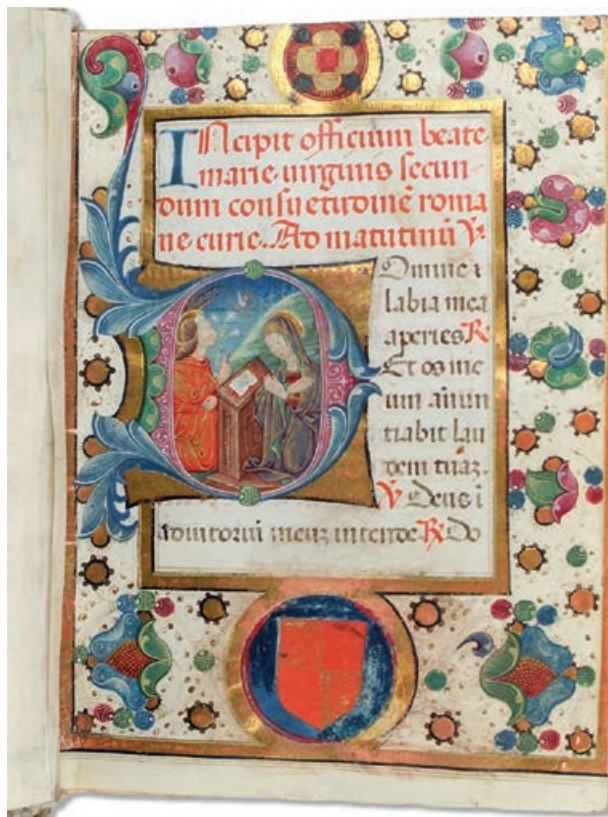 INcipit officium beate
marie uirginis secun
dum consuetudinē roma
ne curie. Ad matutinū ℣.
Domine
labia mea
aperies ℟
Et os me
um annun
tiabit lau
dem tuaꝫ.
℣ Deus i
adiutoriū meuꝫ intende ℟ Do